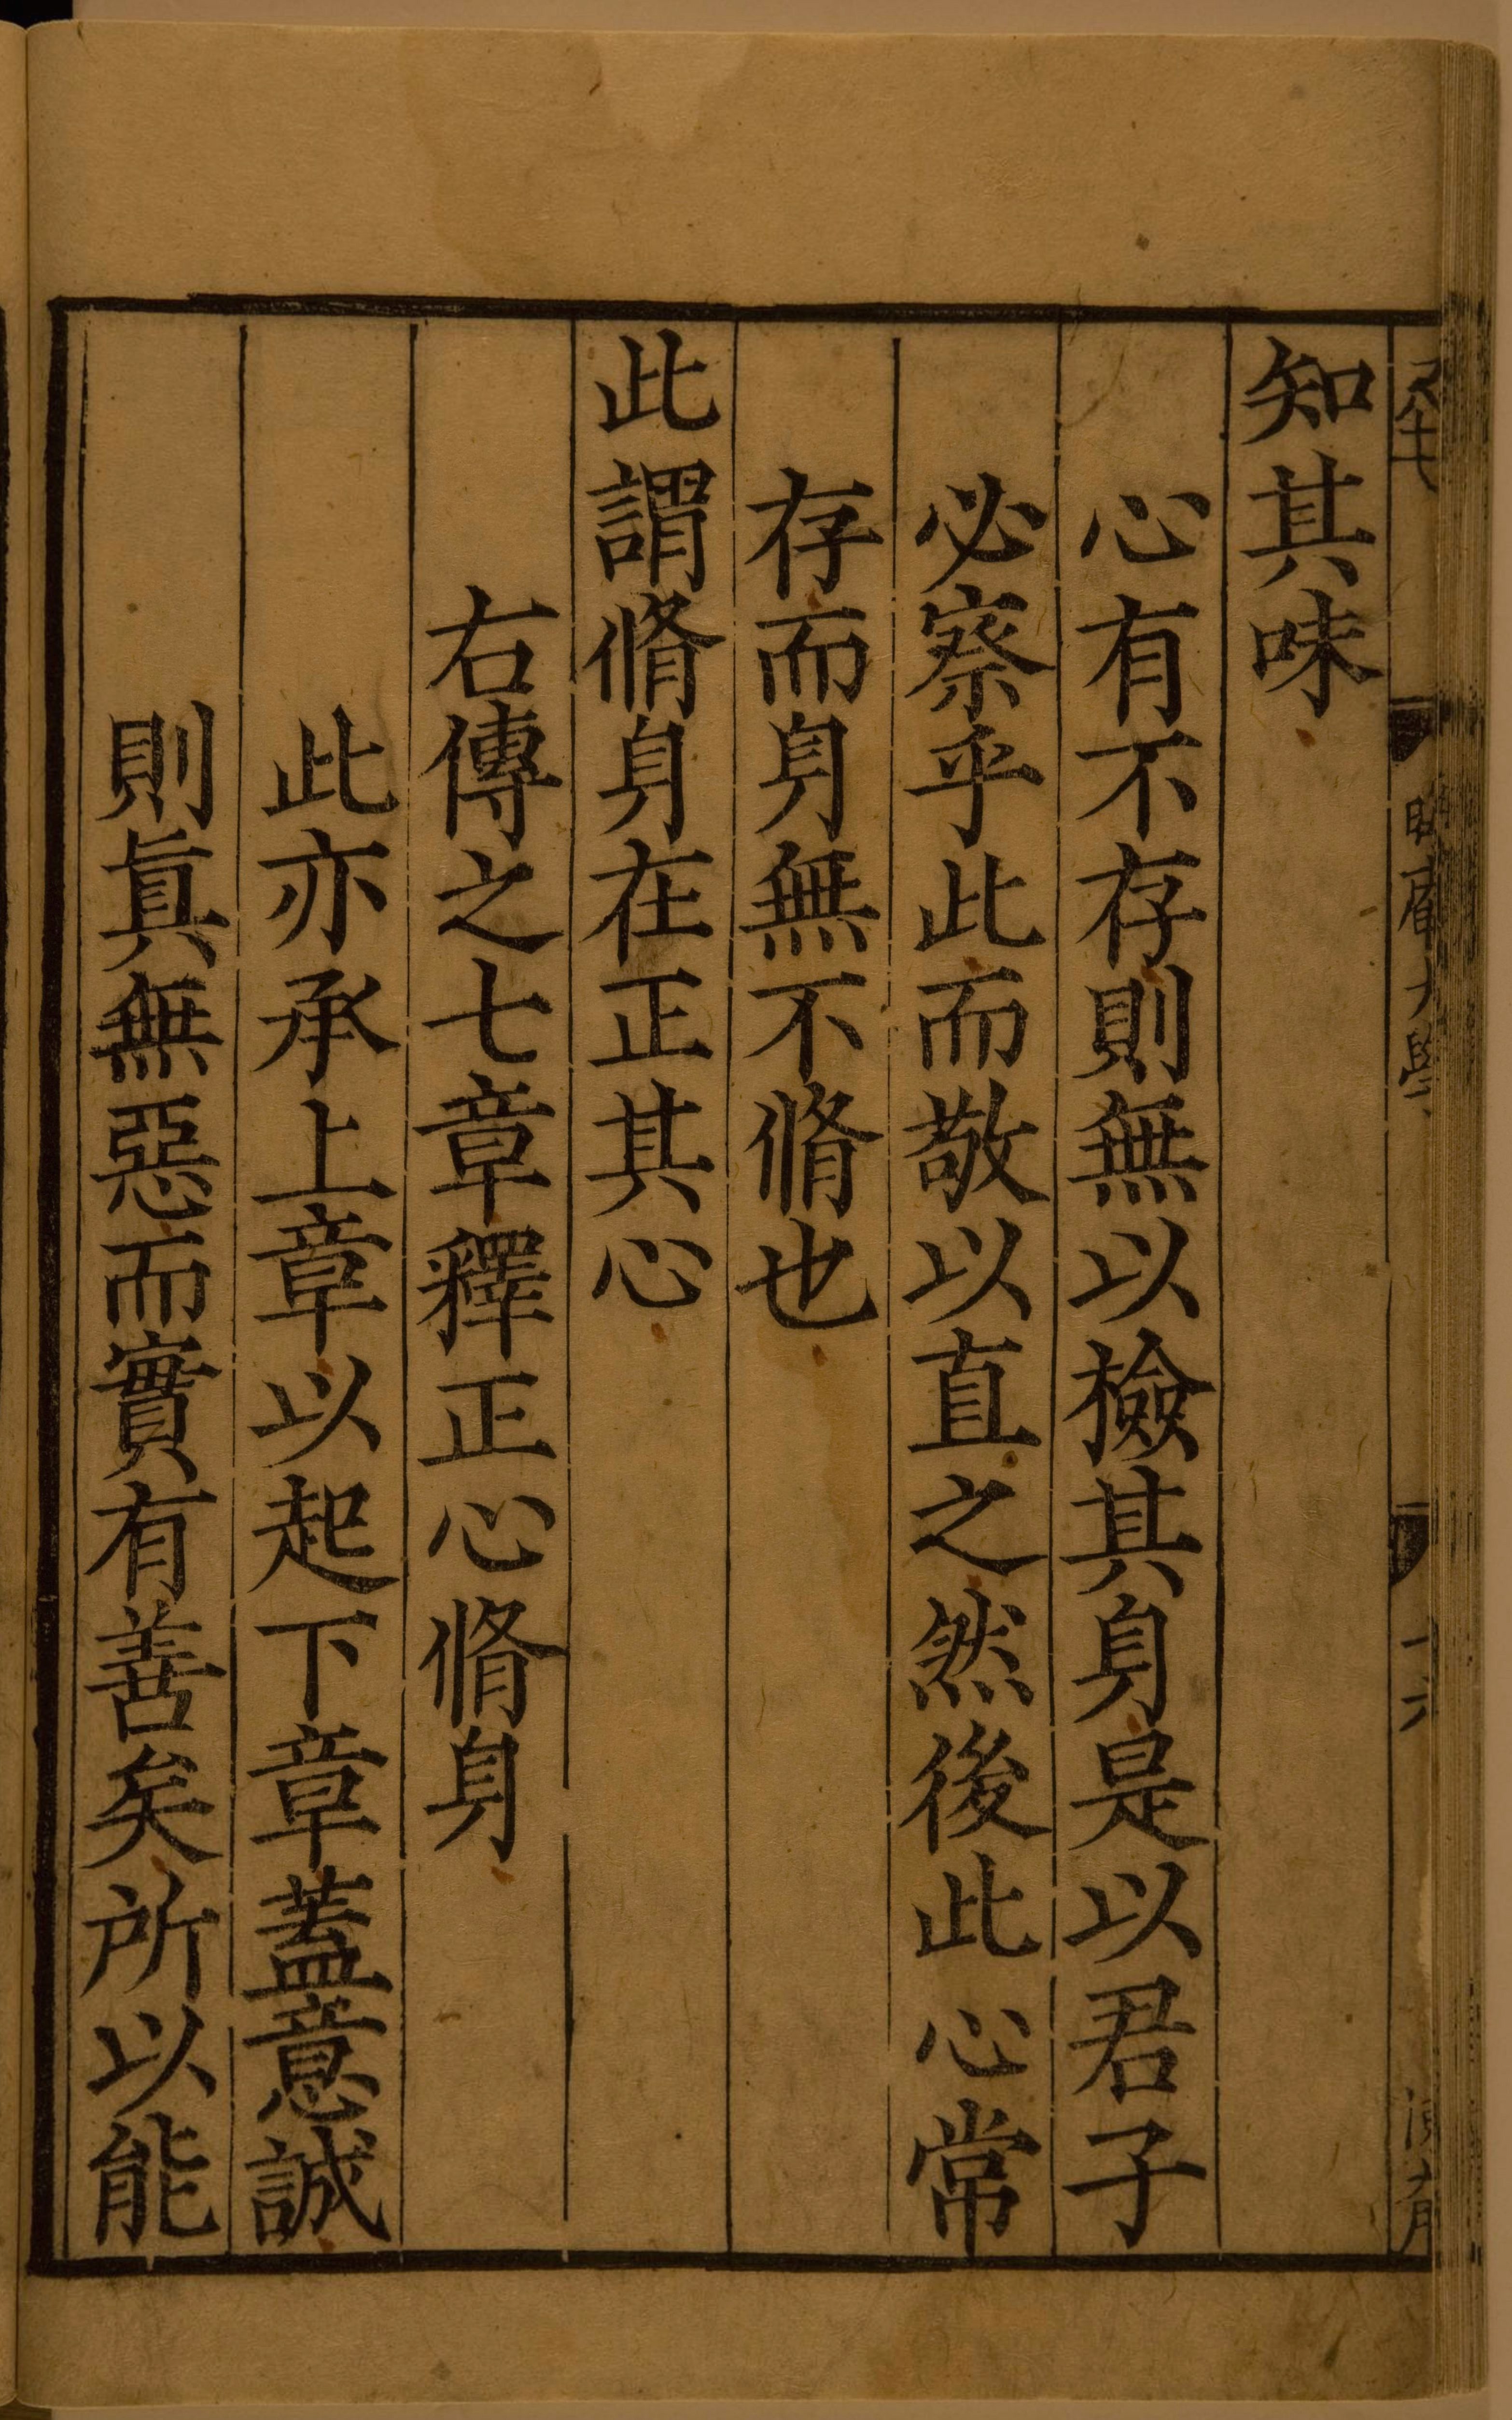 知其味
心有不存則無以檢其身是以君子
必察乎此而敬以直之然後此心常
存而身無不脩也
此謂脩身在正其心
右傳之七章釋正心脩身
此亦承上章以起下章蓋意誠
則眞無惡而實有善矣所以能